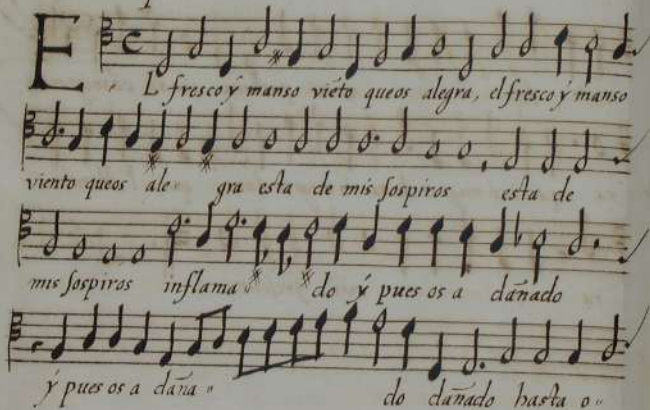 EL fresco ẏ manso viẽto queos alegra, el fresco ẏ manso
viento queos ale〃 gra esta de mis sospiros esta de
mis sospiros inflama〃 do ẏ pues os a dañado
ẏ pues os a daña〃 do dañado hasta o〃